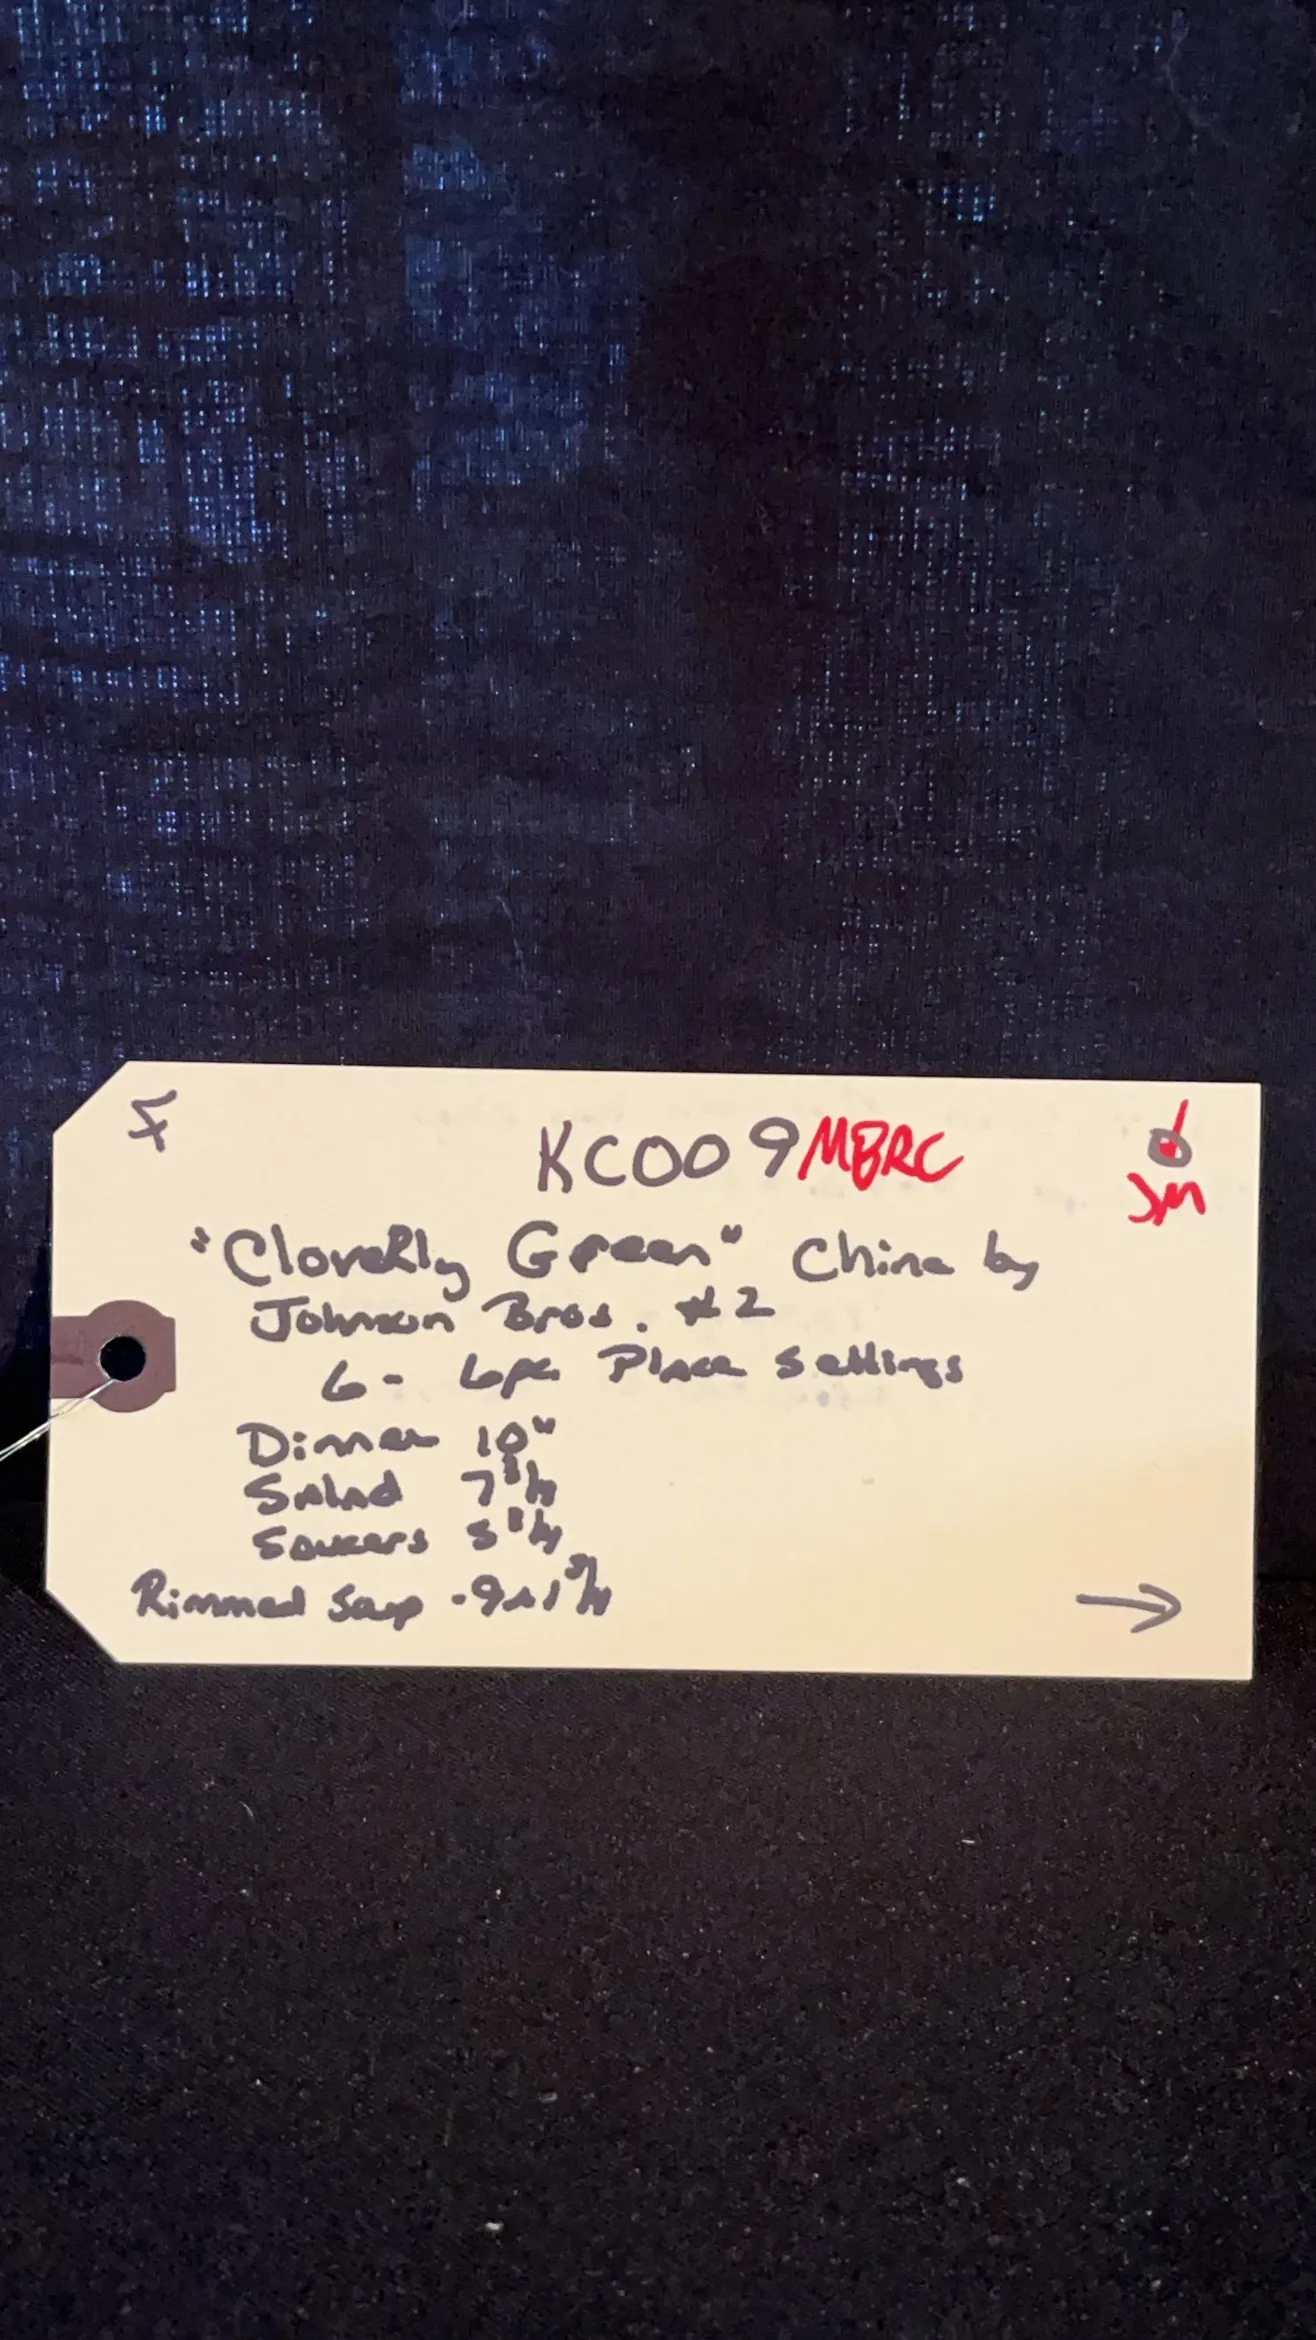 KC009 MBRC
JM
"Cloverly Green" China by
Johnson Bros. #2
6- 6pc Place Settings
Dinner 10"
Salad 7 3/4
Saucers 5 3/4
Rimmed Soup - 9x1 3/4